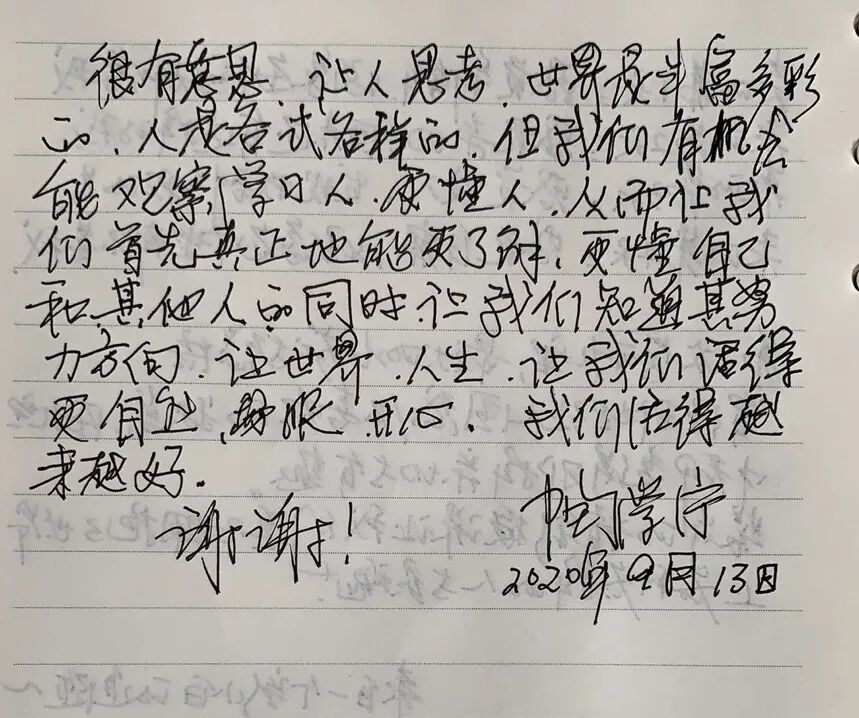 很有意思、让人思考、世界是丰富多彩
的、人是各式各样的、但我们有机会
能观察学习人、更懂人、从而让我
们首先真正地能更了解、更懂自己
和其他人的同时、让我们知道其努
力方向、让世界、人生、让我们活得
更自在、舒服、开心。我们活得越
来越好。
谢谢!
学宁
2020年9月13日